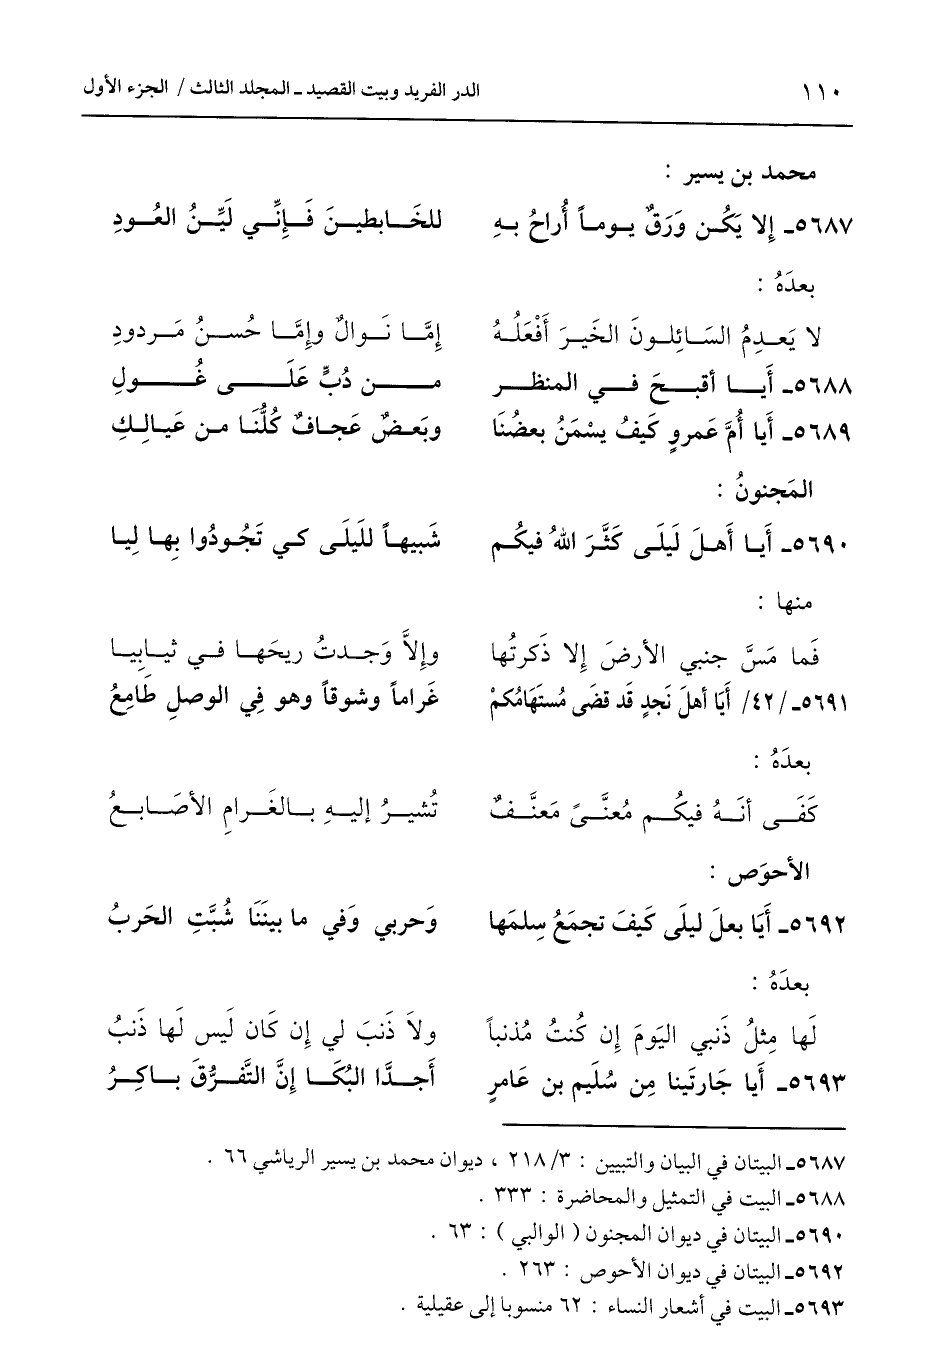 ١١٠ الدر الفريد وبيت القصيد ـ المجلد الثالث / الجزء الأول
محمد بن يسير :
٥٦٨٧ـ إلا يَكُـن وَرَقٌ يـومـاً أُراحُ بـهِ للخَـابطيـنَ فَـإنِّـي لَيِّـنُ العُـودِ
بعدَهُ :
لا يَعـدِمُ السَـائِلـونَ الخَيـرَ أَفْعَلُـهُ إمَّـا نَـوالٌ وإمَّـا حُسـنُ مَـردودِ
٥٦٨٨ـ أَيـا أقبـحَ فـي المنظـر مـن دُبٍّ عَلَـى غُـولِ
٥٦٨٩ـ أَيا أُمَّ عَمروٍ كَيفُ يسْمَنُ بعضُنَا وبَعـضٌ عَجافٌ كُلُّنَـا مـن عَيـالِـكِ
المَجنونُ :
٥٦٩٠ـ أَيـا أَهـلَ لَيلَـى كَثَّـرَ اللهُ فيكُـم شَبيهـاً للَيلَـى كـي تَجُـودُوا بِهـا لِيـا
منها :
فَمـا مَسَّ جنبي الأرضَ إلا ذَكرتُها وإلاَّ وَجـدتُ ريحَهـا فـي ثيـابيـا
٥٦٩١ـ /٤٢/ أَيَا أهلَ نَجدٍ قَد قضَى مُستَهَامُكمْ غَراماً وشوقاً وهو فِي الوصلِ طَامِعُ
بعدَهُ :
كَفَـى أنَـهُ فيكُـم مُعنَّـىً مَعنَّـفٌ تُشيـرُ إليـهِ بـالغَـرامِ الأصَـابـعُ
الأحوَص :
٥٦٩٢ـ أَيَا بعلَ ليلَى كَيفَ تجمَعُ سِلمَها وَحربي وَفي ما بينَنَا شُبَّتِ الحَربُ
بعدَهُ :
لَها مِثلُ ذَنبي اليَومَ إن كُنتُ مُذنباً ولاَ ذَنبَ لي إن كَان لَيس لَها ذَنبُ
٥٦٩٣ـ أَيا جَارتَينا مِن سُلَيم بن عَامرٍ أَجـدَّا البُكَـا إنَّ التَّفـرُّقَ بـاكِـرُ
٥٦٨٧ـ البيتان في البيان والتبيين : ٢١٨/٣ ، ديوان محمد بن يسير الرياشي ٦٦ .
٥٦٨٨ـ البيت في التمثيل والمحاضرة : ٣٣٣ .
٥٦٩٠ـ البيتان في ديوان المجنون ( الوالبي ) : ٦٣ .
٥٦٩٢ـ البيتان في ديوان الأحوص : ٢٦٣ .
٥٦٩٣ـ البيت في أشعار النساء : ٦٢ منسوبا إلى عقيلية .